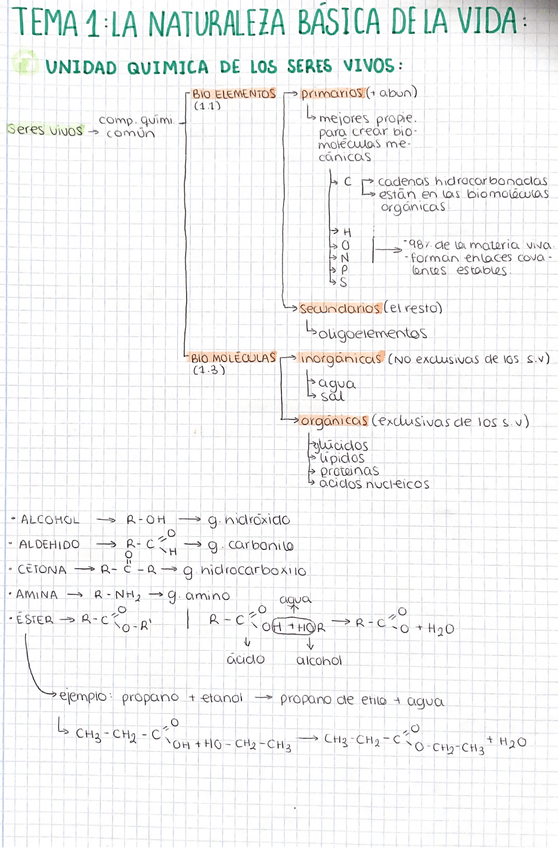 TEMA 1: LA NATURALEZA BÁSICA DE LA VIDA:
UNIDAD QUIMICA DE LOS SERES VIVOS:
seres vivos → comp. quimi común
BIO ELEMENTOS (1.1)
primarios (+ abun)
mejores propie.
para crear bio-
moléculas me-
cánicas
C → cadenas hidrocarbonadas
→ están en las biomoléculas
orgánicas
H
O
N
P
S
-98% de la materia viva
-forman enlaces cova-
lentes estables.
secundarios (el resto)
oligoelementos
BIO MOLÉCULAS (1.3)
inorgánicas (NO exclusivas de los s.v)
agua
sal
orgánicas (exclusivas de los s.v)
glúcidos
lípidos
proteinas
ácidos nucleicos
· ALCOHOL → R-OH → g. hidróxido
· ALDEHIDO → R-C=O H → g. carbonilo
· CETONA → R-C-R → g. hidrocarboxilo
O
· AMINA → R-NH2 → g. amino
agua
· ÉSTER → R-C=O O-R' | R-C=O OH + HOR → R-C=O O + H2O
ácido alcohol
ejemplo: propano + etanol → propano de etilo + agua
CH3-CH2-C=O OH + HO-CH2-CH3 → CH3-CH2-C=O O-CH2-CH3 + H2O